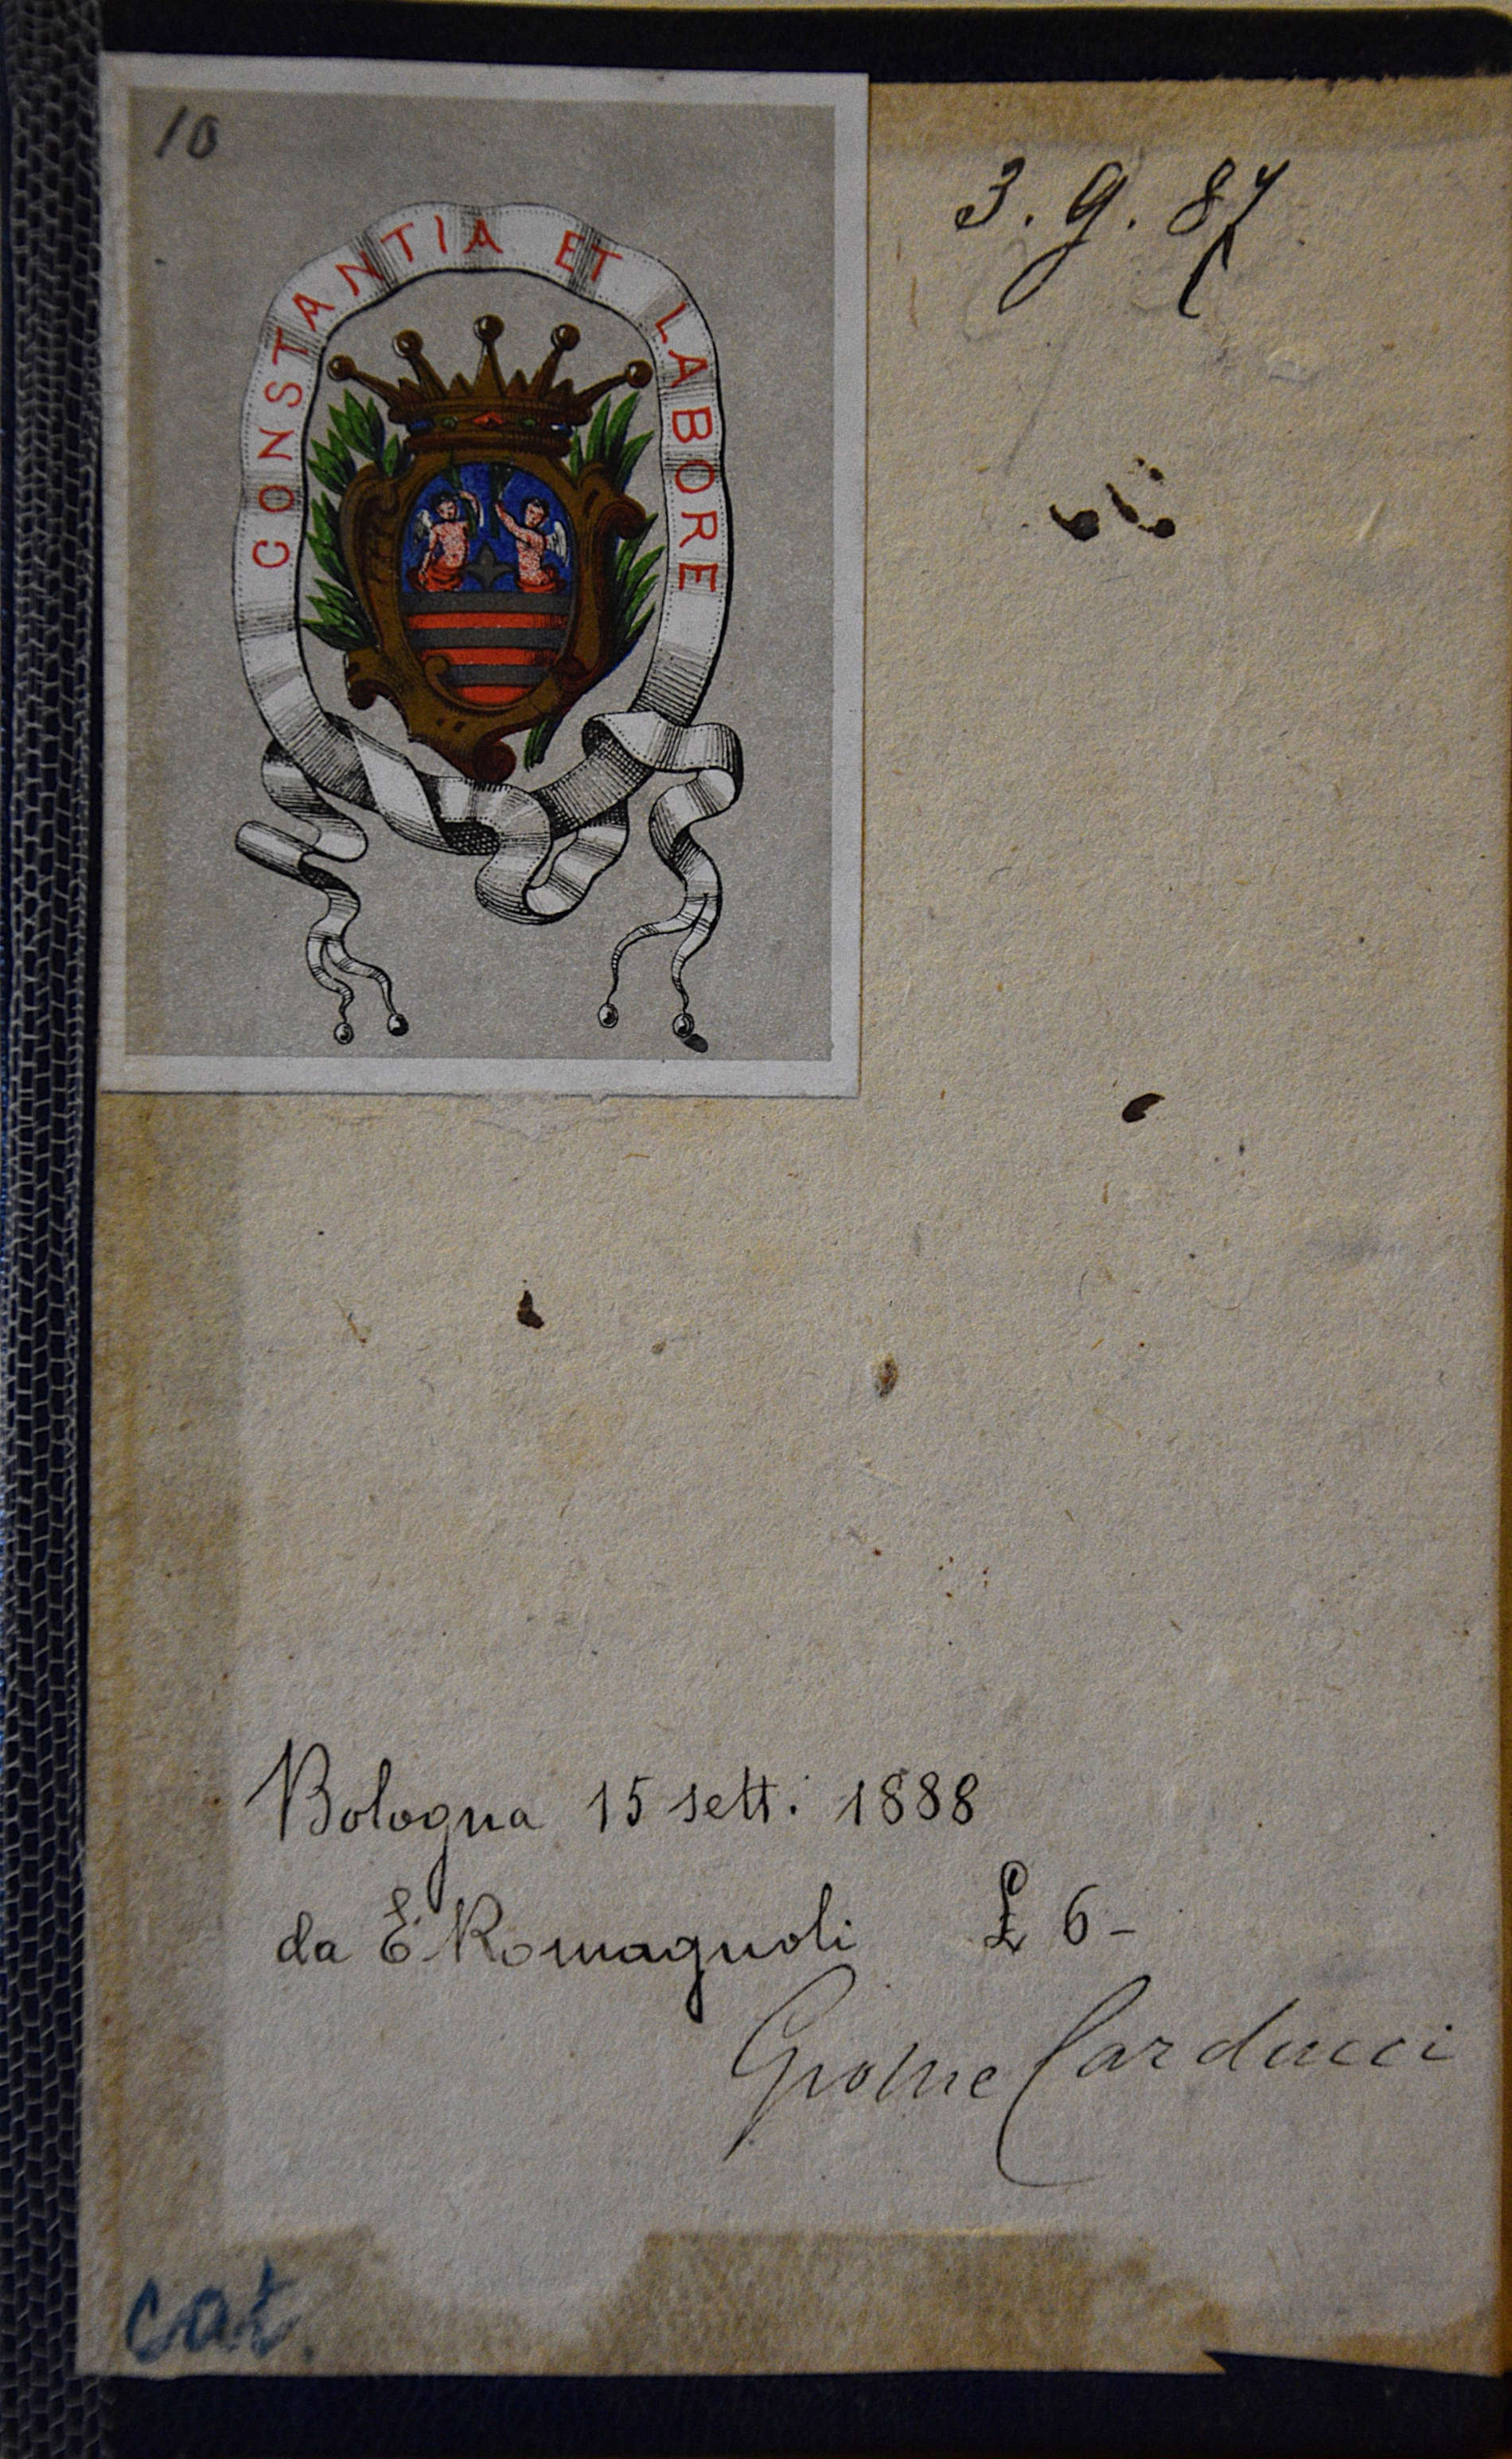 10
CONSTANTIA ET LABORE
3. 9. 87
Bologna 15 sett. 1888
da E Romagnoli £ 6-
Giosue Carducci
cat.